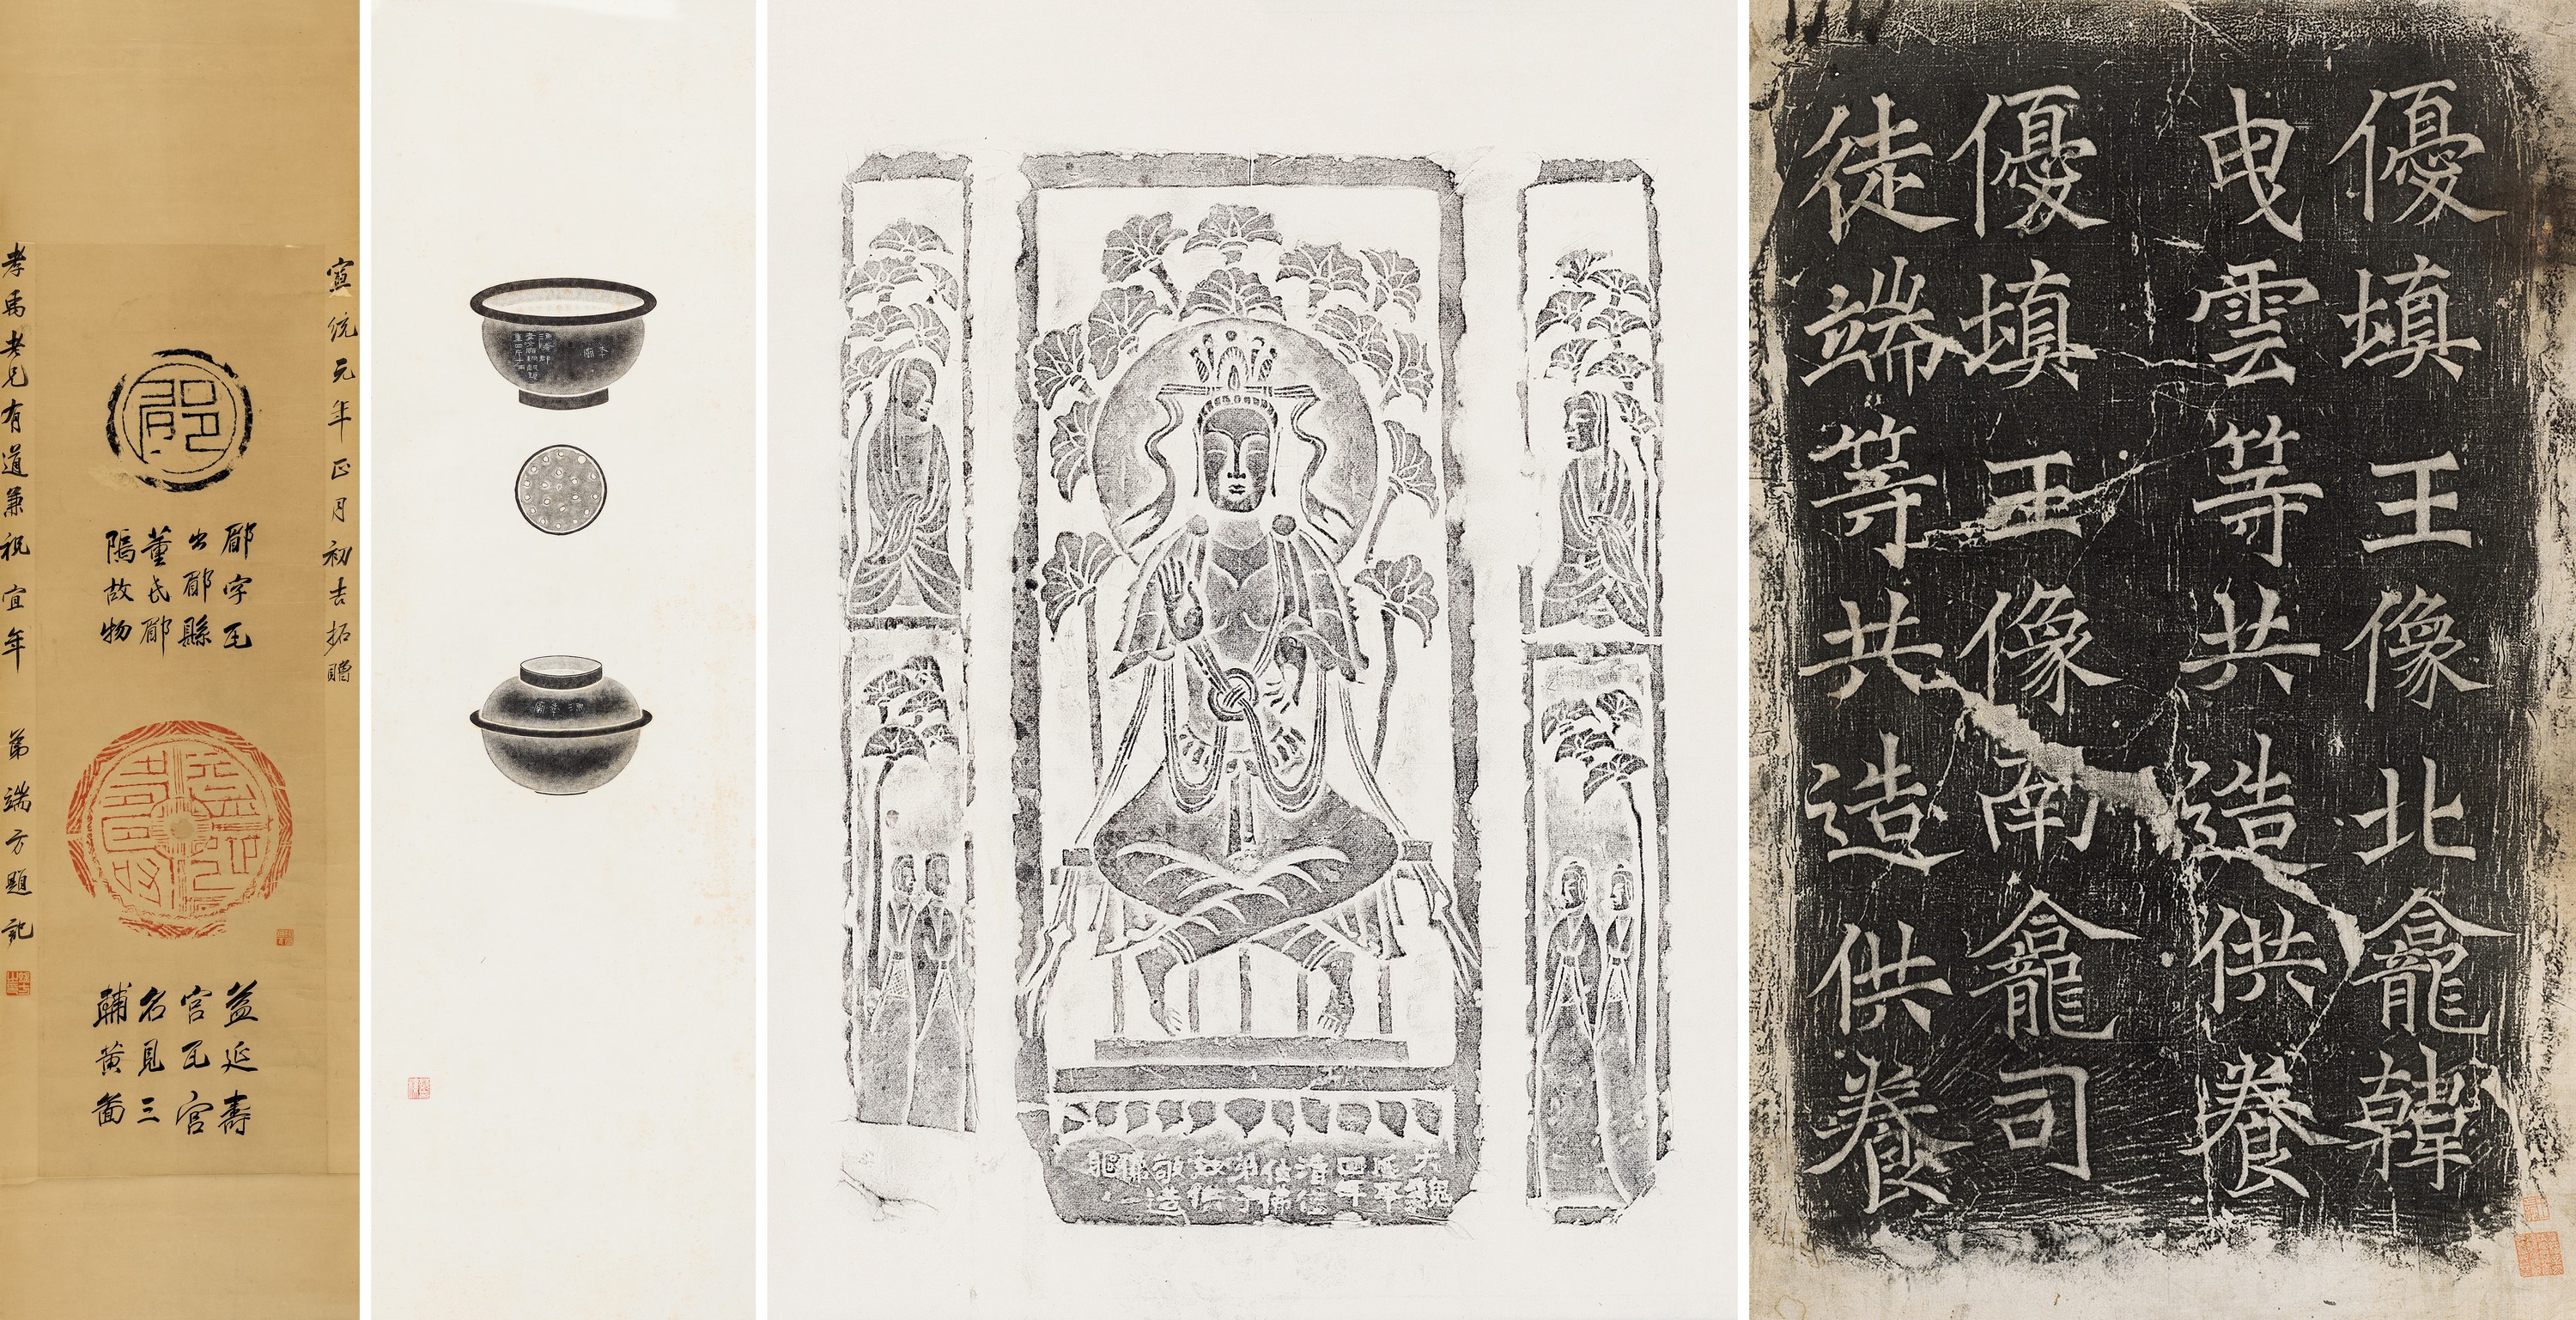 宣統元年正月初吉拓贈
郿
郿字瓦
出郿縣
董氏郿
隖故物
益延壽
宮瓦宮
名見三
輔黃圖
孝禹老兄有道兼祝宜年 弟端方題記
大魏
清信
優填王像北龕韓
曳雲等共造供養
優填王像南龕司
徒端等共造供養